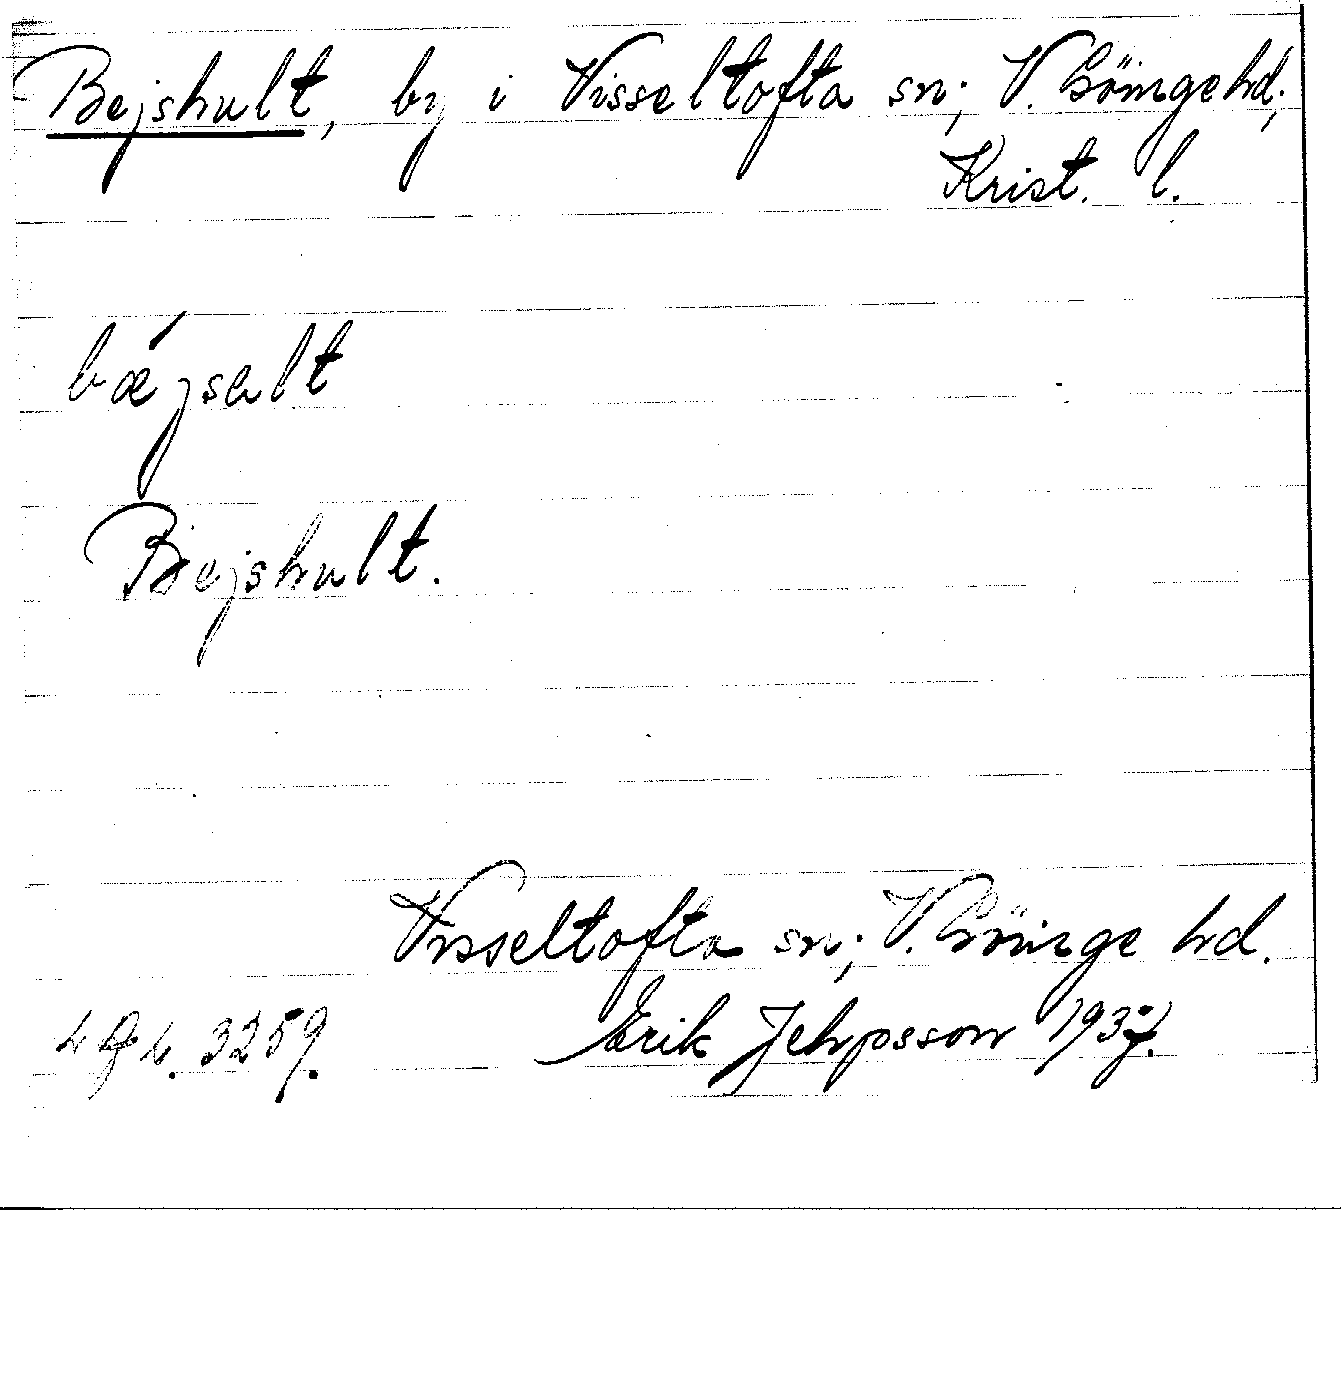 Bejshult, by i Visseltofta sn; V. Göinge hd;
Krist. l.
bǽjsalt
Bejshult.
Visseltofta sn; V. Göinge hd.
3259. Erik Jehpsson 1937.